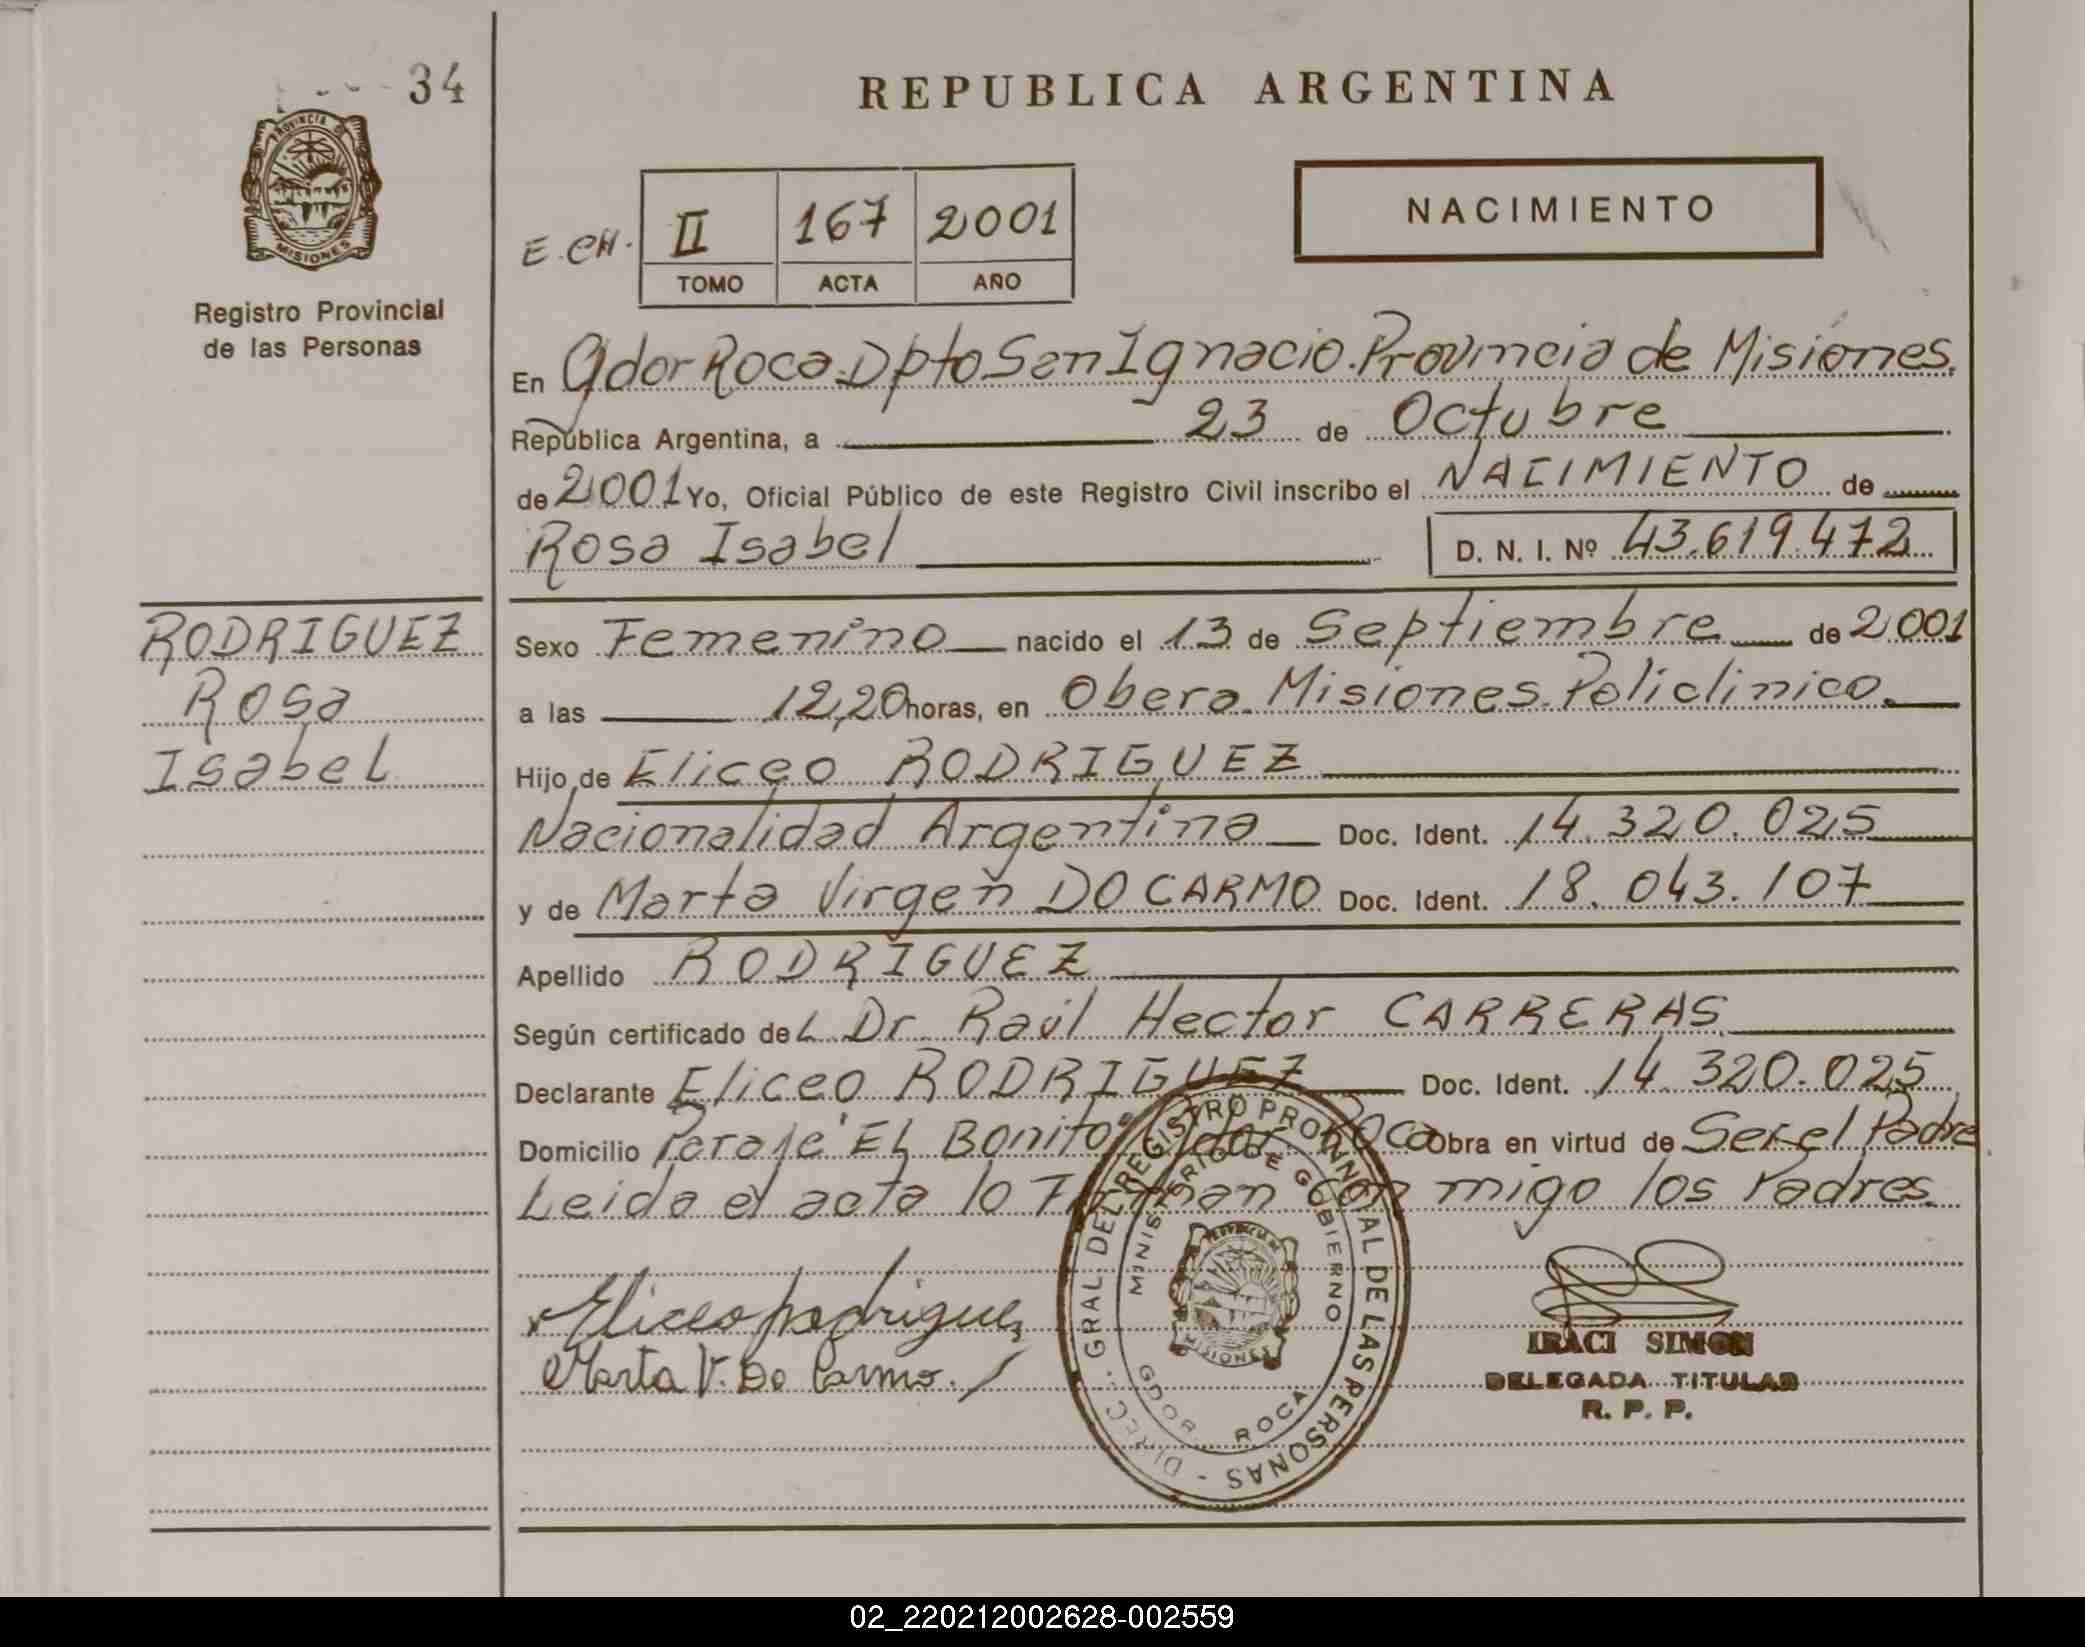 34
PROVINCIA DE
MISIONES
Registro Provincial
de las Personas
REPUBLICA ARGENTINA
NACIMIENTO
E.CH. II 167 2001
TOMO ACTA AÑO
En Gdor Roca.Dpto San Ignacio.Provincia de Misiones.
República Argentina, a 23 de Octubre
de 2001 Yo, Oficial Público de este Registro Civil inscribo el NACIMIENTO de
Rosa Isabel D. N. I. Nº 43.619.472
RODRIGUEZ
Rosa
Isabel
Sexo Femenino nacido el 13 de Septiembre de 2001
a las 12,20 horas, en Obera.Misiones.Policlinico.
Hijo de Eliceo RODRIGUEZ
Nacionalidad Argentina Doc. Ident. 14.320.025
y de Marta Virgen DO CARMO Doc. Ident. 18.043.107
Apellido RODRIGUEZ
Según certificado del Dr. Raúl Hector CARRERAS
Declarante Eliceo RODRIGUEZ Doc. Ident. 14.320.025
Domicilio Paraje "EL Bonito" Gdor Roca Obra en virtud de Ser el Padre
Leida el acta lo Firman con migo los Padres.
Eliceo rodriguez
Marta V. Do Carmo.
DIREC. GRAL. DEL REGISTRO PROVINCIAL DE LAS PERSONAS -
MINISTERIO DE GOBIERNO
GDOR ROCA
PROVINCIA DE
MISIONES
IRACI SIMON
DELEGADA TITULAR
R. P. P.
02_220212002628-002559